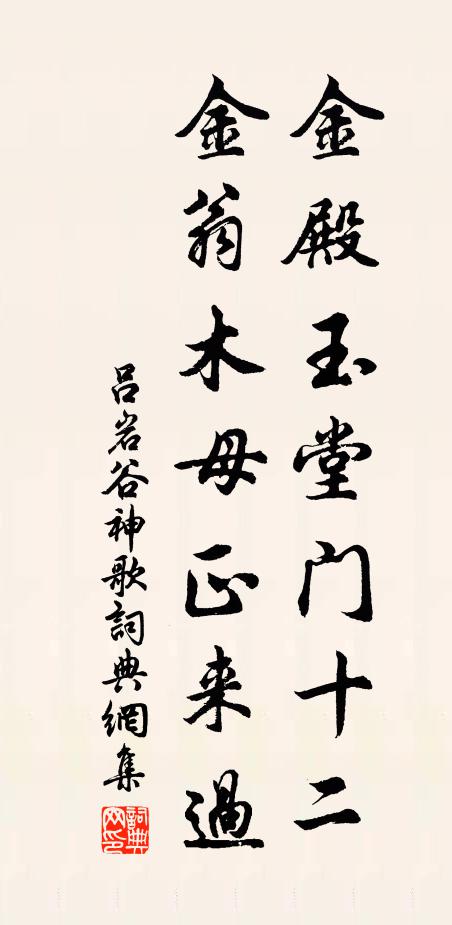 金殿玉堂门十二
金翁木母正来過
吕岩谷神歌詞典網集
詞典网印